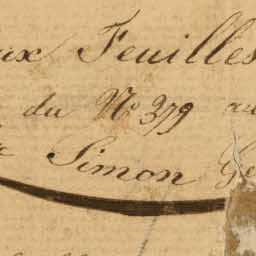 aux Feuilles
du No 379 au
Simon Ge